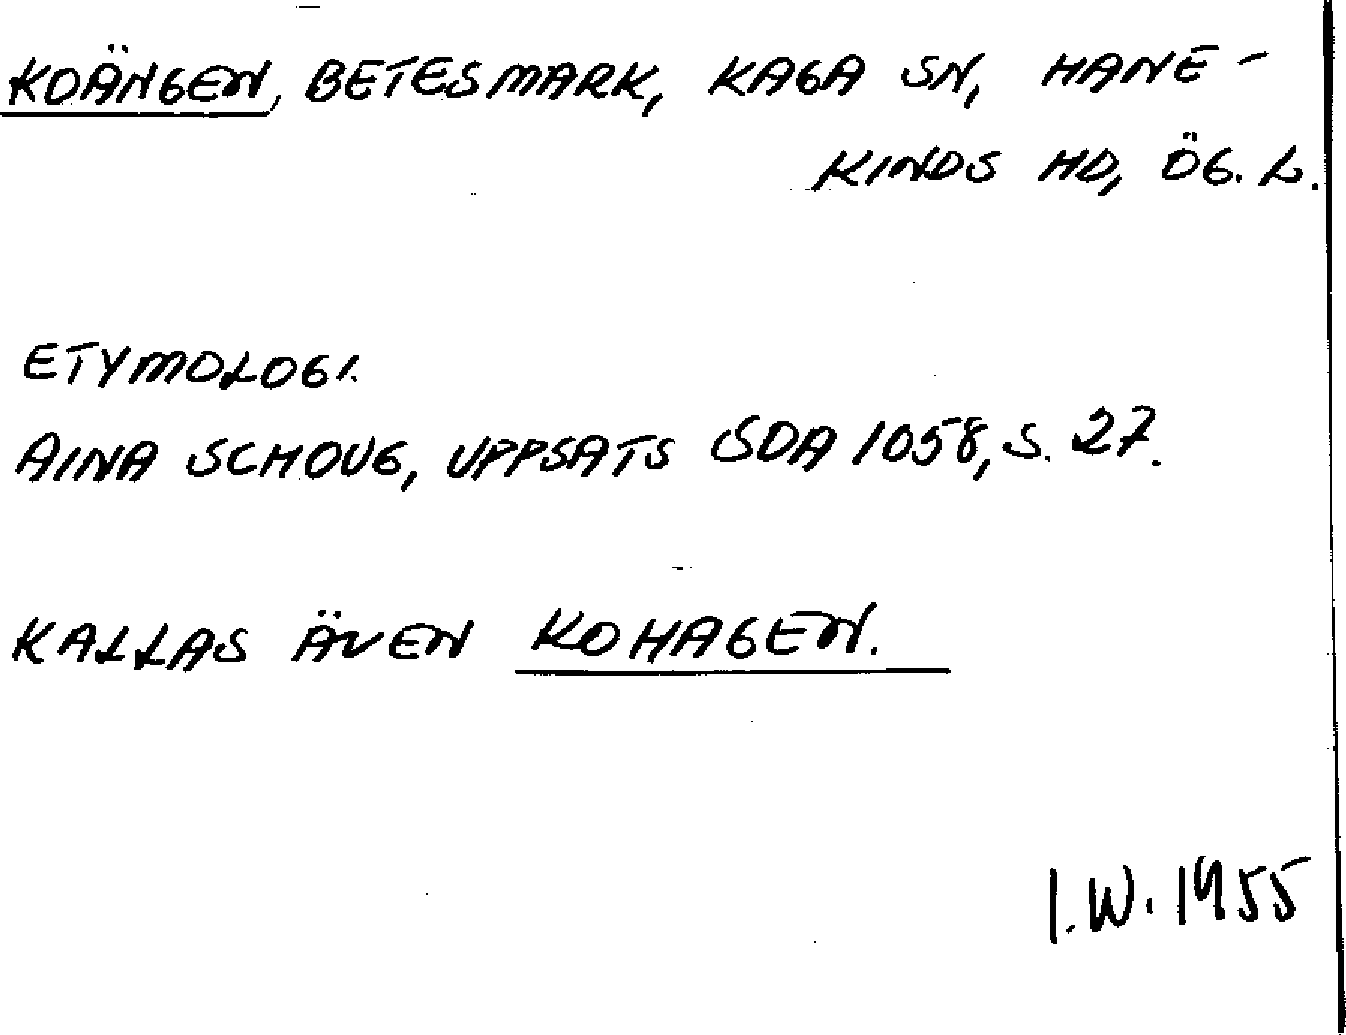 KOÄNGEN, BETESMARK, KAGA SN, HANE-
KINDS HD, ÖG. L.
ETYMOLOGI.
AINA SCHOUG, UPPSATS SOA 1058, S. 27.
KALLAS ÄVEN KOHAGEN.
I.W. 1955